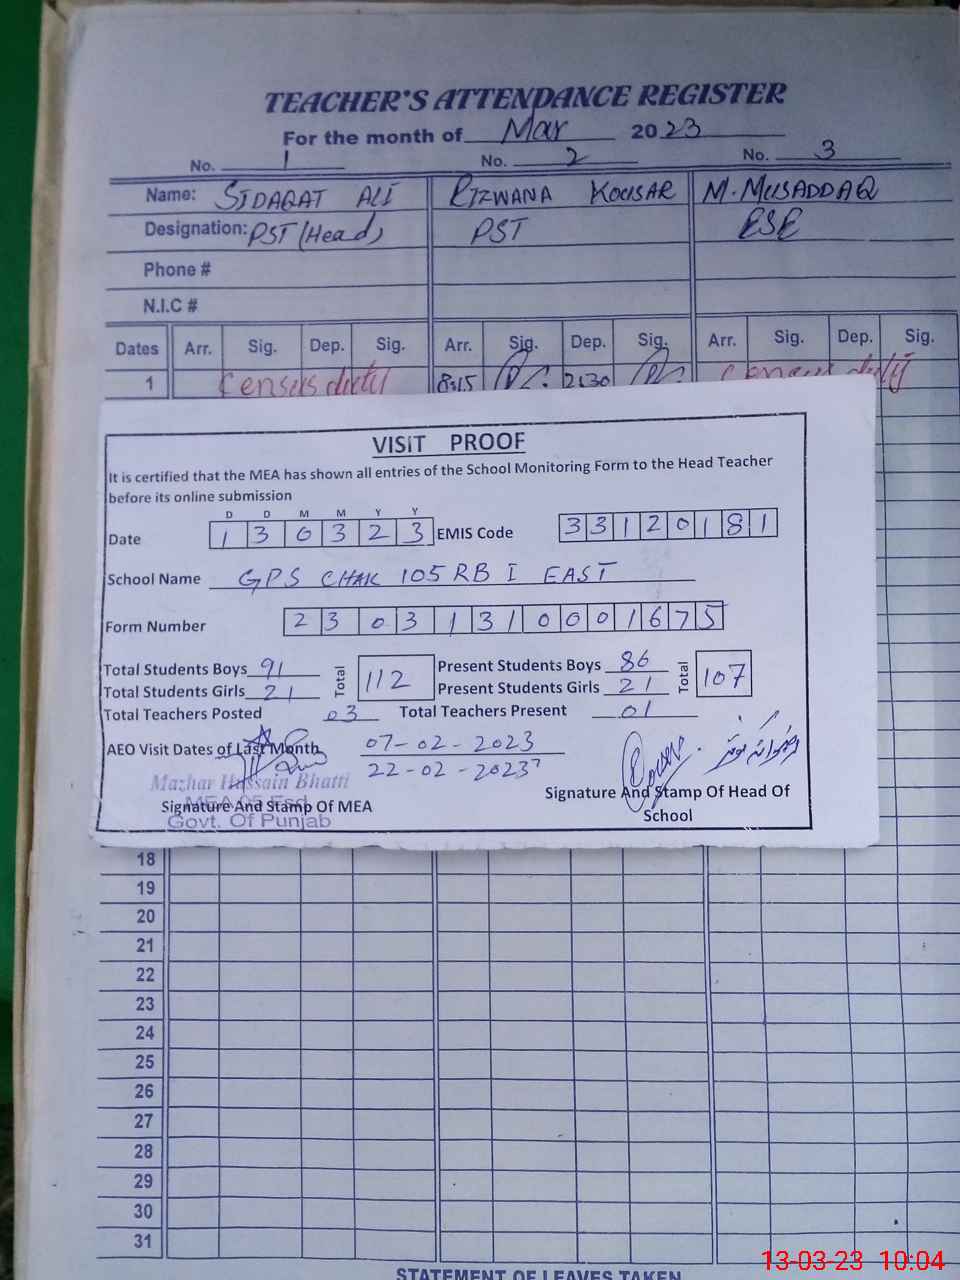 TEACHER'S ATTENDANCE REGISTER
For the month of Mar 2023
No. 1 No. 2 No. 3
Name: SIDAQAT ALI RIZWANA KOUSAR M. MUSADDAQ
Designation: PST (Head) PST ESE
Phone #
N.I.C #
Dates Arr. Sig. Dep. Sig. Arr. Sig. Dep. Sig. Arr. Sig. Dep. Sig.
1 Census duty 8:15 2:30 Census duty
VISIT PROOF
It is certified that the MEA has shown all entries of the School Monitoring Form to the Head Teacher
before its online submission
D D M M Y Y
Date 1 3 0 3 2 3 EMIS Code 3 3 1 2 0 1 8 1
School Name GPS CHAK 105 RB I EAST
Form Number 2 3 0 3 1 3 1 0 0 0 1 6 7 5
Total Students Boys 91 Total 112 Present Students Boys 86 Total 107
Total Students Girls 21 Present Students Girls 21
Total Teachers Posted 03 Total Teachers Present 01
AEO Visit Dates of Last Month 07-02-2023
22-02-2023
Mazhar Hussain Bhatti
Signature And Stamp Of MEA
Govt. Of Punjab
Signature And Stamp Of Head Of
School
18
19
20
21
22
23
24
25
26
27
28
29
30
31
STATEMENT OF LEAVES TAKEN
13-03-23 10:04